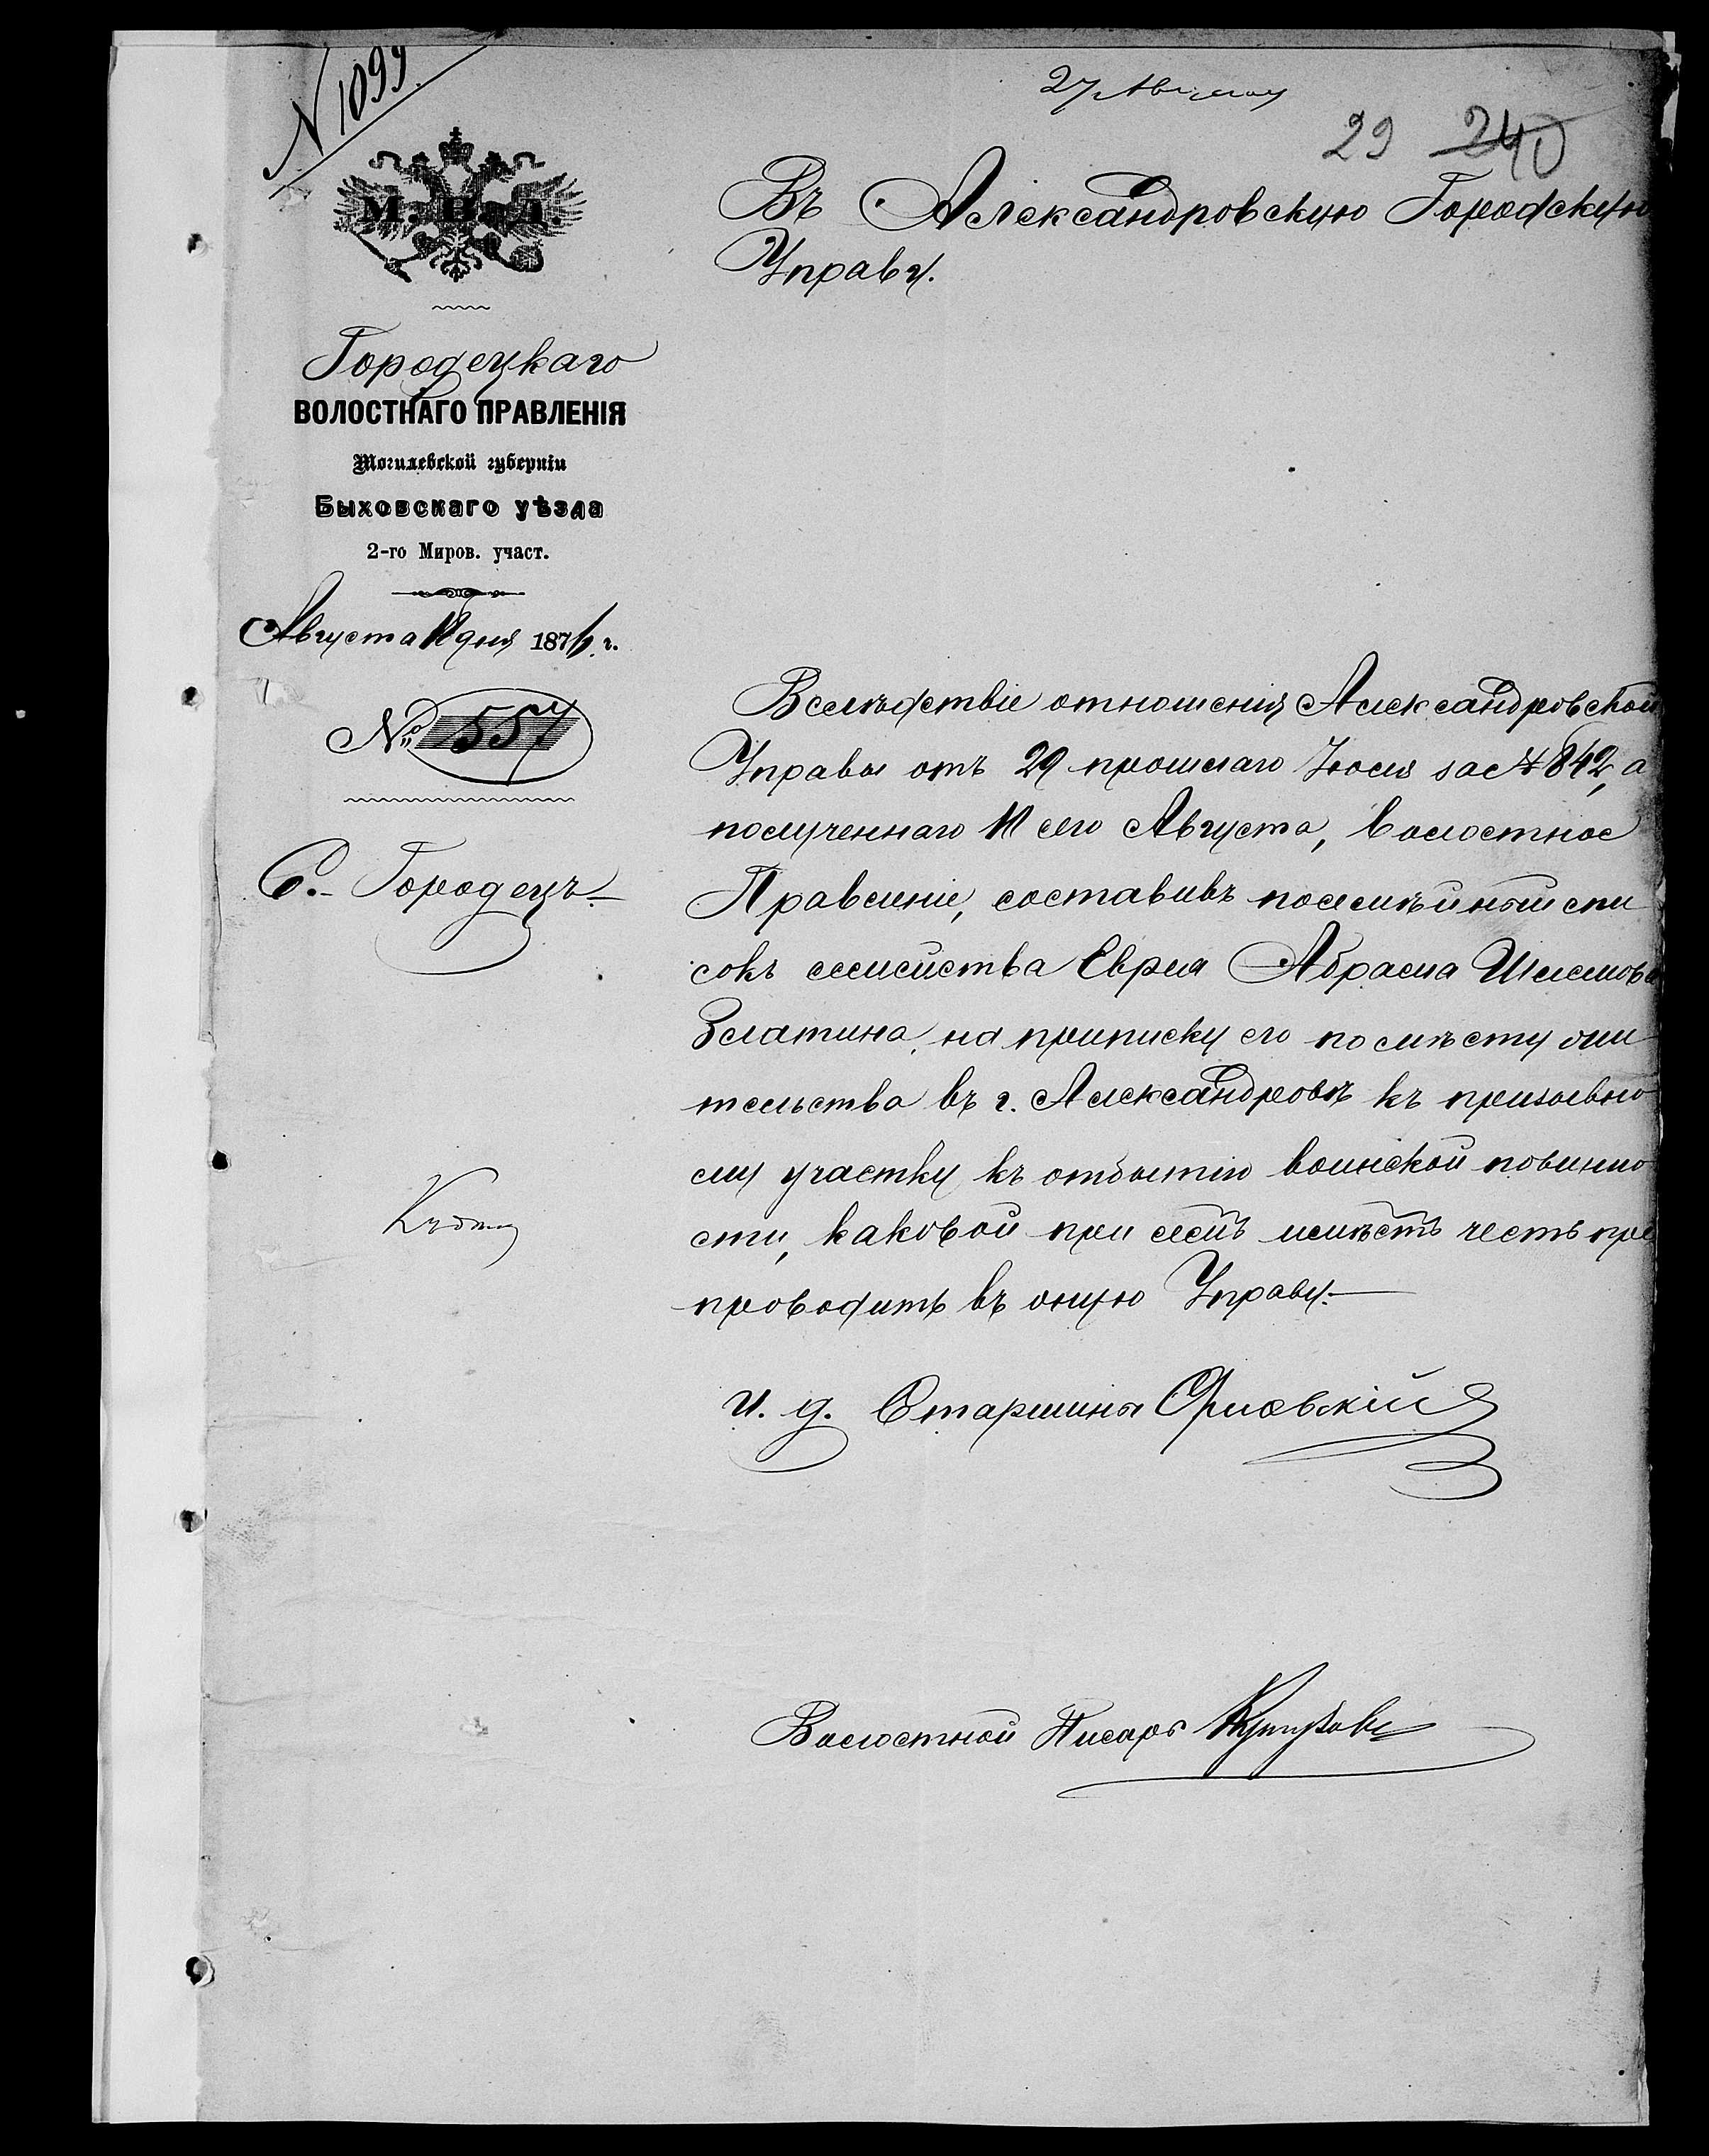 N 1099
27 Августа
29 240
М. В. Д.
Городецкаго
ВОЛОСТНАГО ПРАВЛЕНІЯ
Могилевской губерніи
Быховскаго уѣзда
2-го Миров. участ.
Августа 11 дня 1876 г.
№ 557
С. Городецъ
Въ Александровскую Городскую
Управу.
Вслѣдствіе отношенія Александровской
Управы отъ 29 прошлаго Іюля за № 842, а
полученнаго 11 сего Августа, Волостное
Правленіе, составивъ посемѣйный спи
сокъ семейства Еврея Абрама Шлемова
Златина, на приписку его по мѣсту жи
тельства въ г. Александровѣ къ призывно
му участку къ отбытію воинской повинно
сти, каковой при семъ имѣетъ честь пре
проводить въ оную Управу.
И. д. Старшины Орловскій
Волостной Писарь